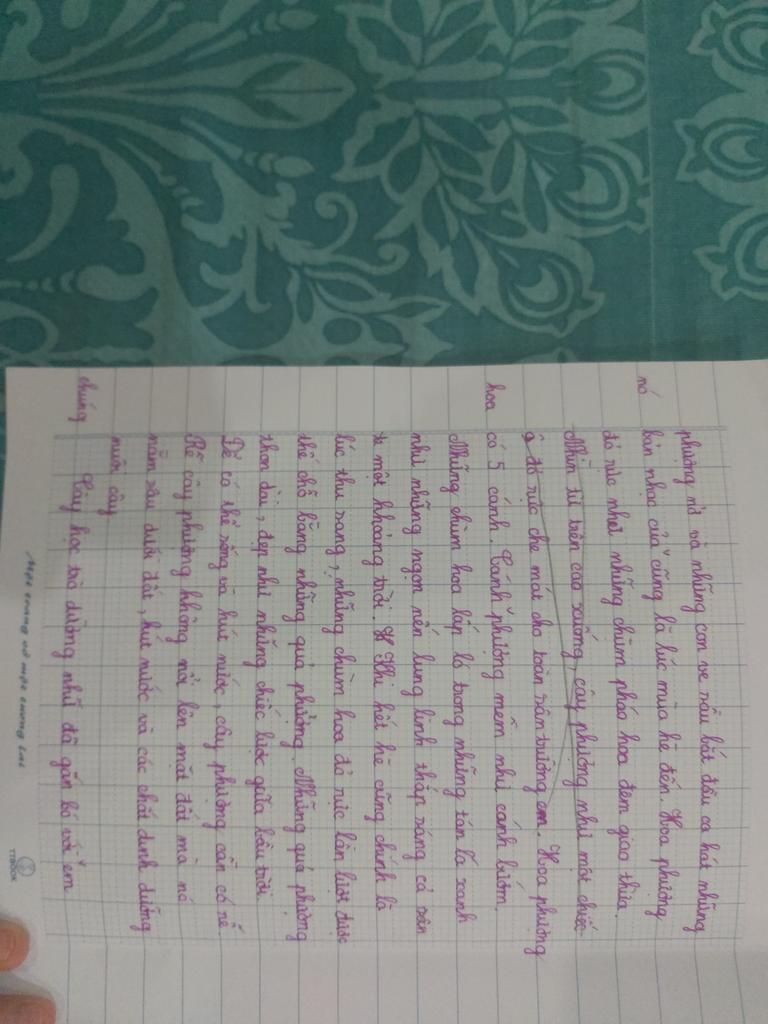 phượng nở và những con ve sầu bắt đầu ca hát những
nó bản nhạc của cũng là lúc mùa hè đến. Hoa phượng
đỏ rực như những chùm pháo hoa đêm giao thừa.
Nhìn từ trên cao xuống, cây phượng như một chiếc
ô đỏ rực che mát cho toàn sân trường em. Hoa phượng
hoa có 5 cánh. Cánh phượng mềm như cánh bướm.
Những chùm hoa lấp ló trong những tán lá xanh
như những ngọn nến lung linh thắp sáng cả sân
một khoảng trời. Khi hết hè cũng chính là
lúc thu sang, những chùm hoa đỏ rực lần lượt được
thế chỗ bằng những quả phượng. Những quả phượng
thon dài, đẹp như những chiếc lược giữa bầu trời.
Để có thể sống và hút nước, cây phượng cần có rễ.
Rễ cây phượng không nổi lên mặt đất mà nó
nằm sâu dưới đất, hút nước và các chất dinh dưỡng
nuôi cây
chúng Cây học trò dường như đã gắn bó với em
TTBOOK